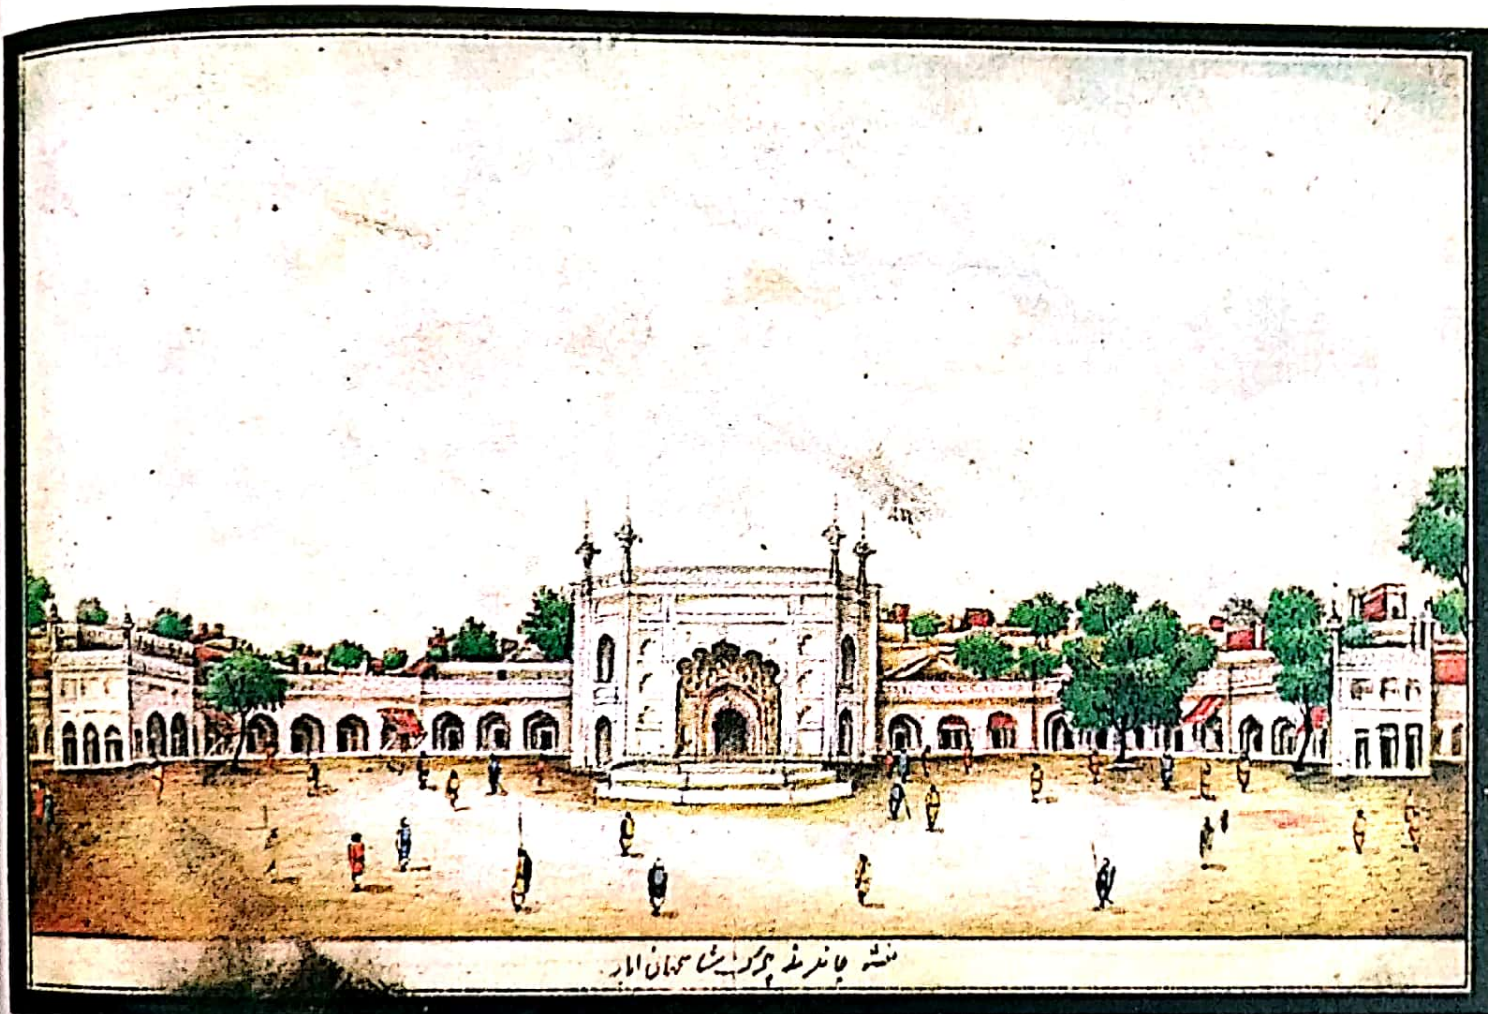 نقشه چاندنے چوک شاهجهان اباد